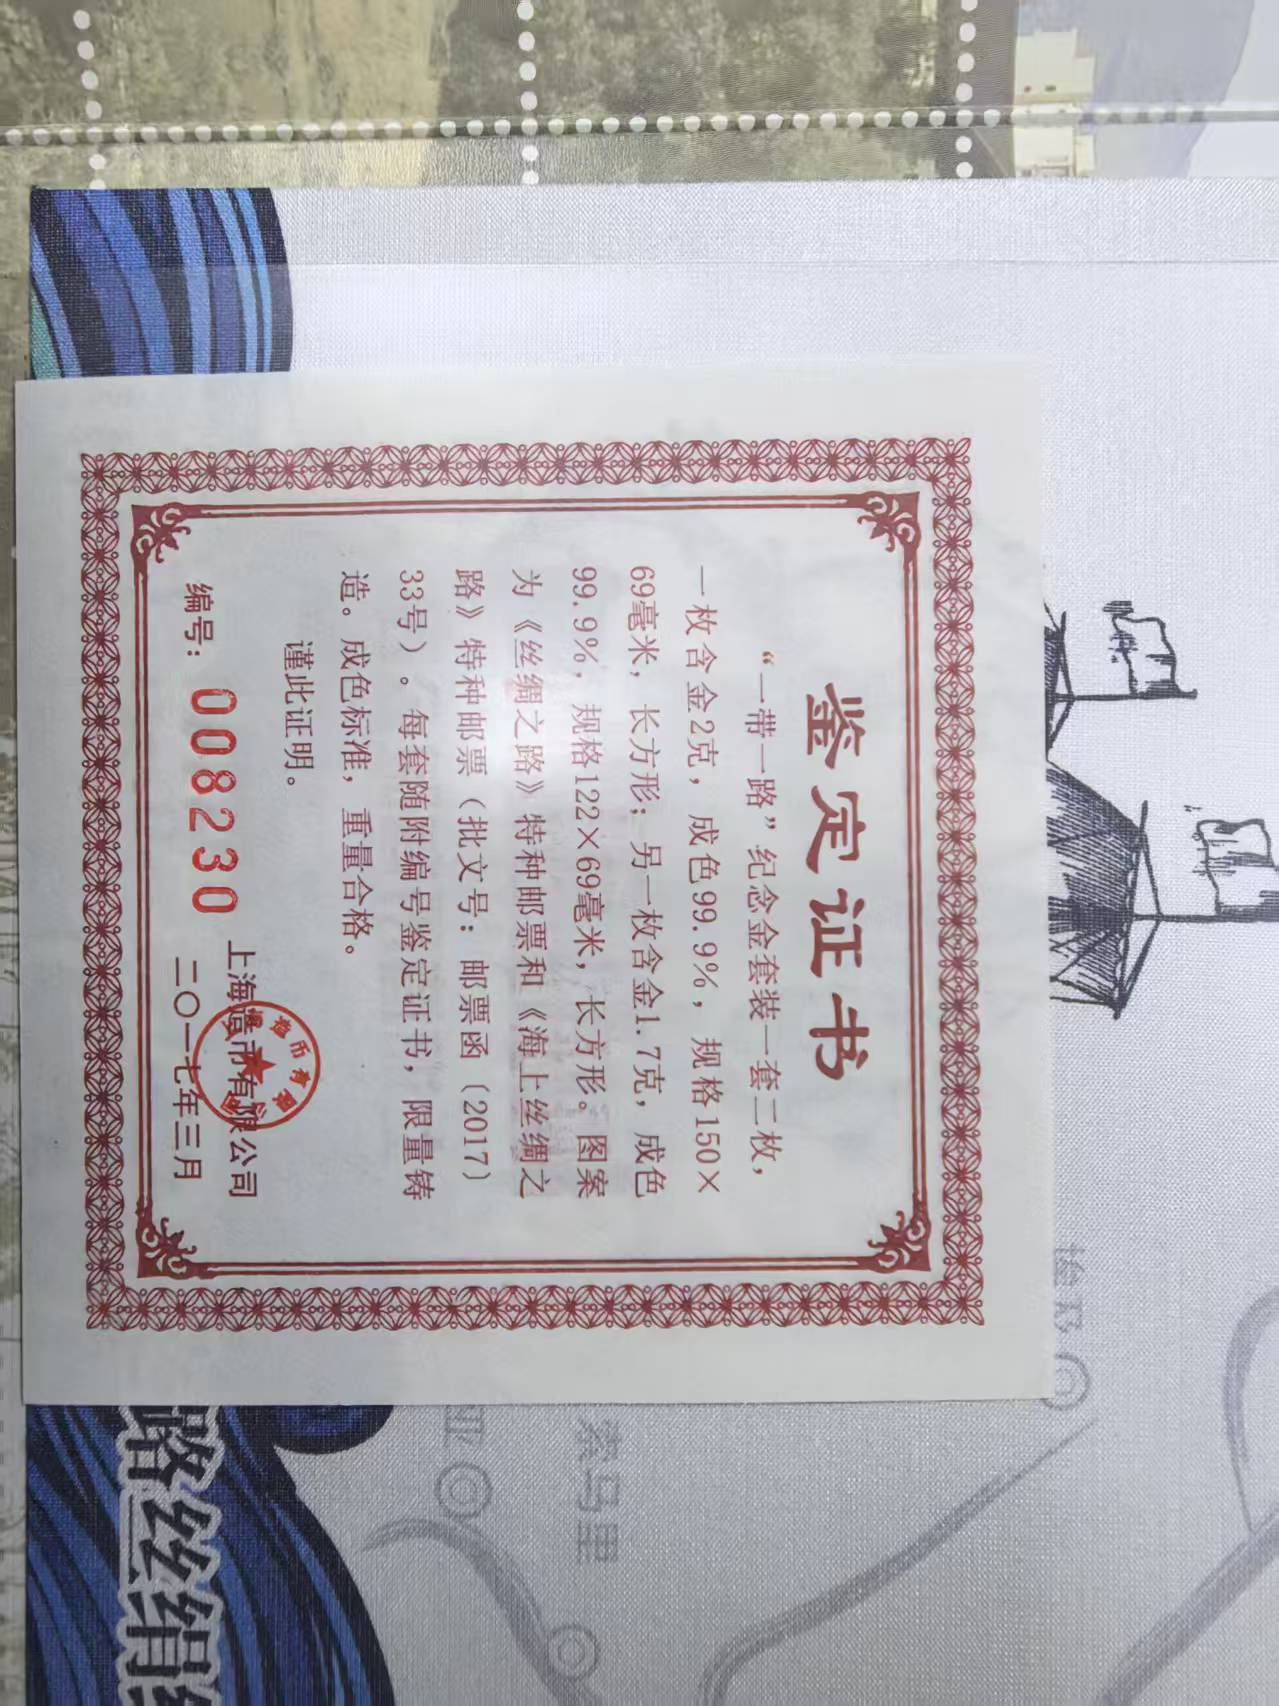 鉴定证书
“一带一路”纪念金套装一套二枚，
一枚含金2克，成色99.9%，规格150×
69毫米，长方形；另一枚含金1.7克，成色
99.9%，规格122×69毫米，长方形。图案
为《丝绸之路》特种邮票和《海上丝绸之
路》特种邮票（批文号：邮票函〔2017〕
33号）。每套随附编号鉴定证书，限量铸
造。成色标准，重量合格。
谨此证明。
编号：008230
上海造币有限公司
二〇一七年三月
索马里
路丝绢